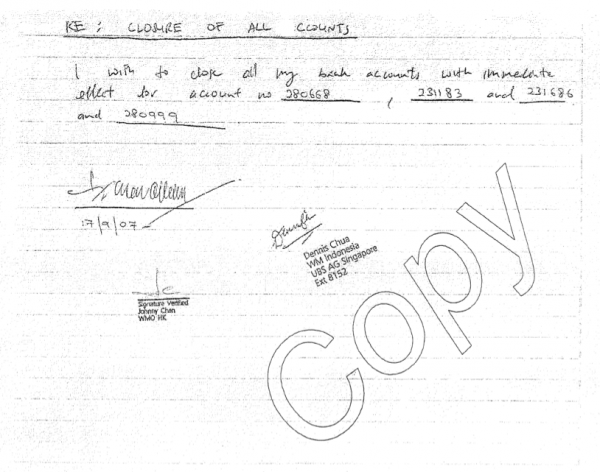 RE: CLOSURE OF ALL CCOUNTS
I wish to close all my bank accounts with immediate
effect for account no 280668, 231183 and 231686
and 280999
17/9/07
Dennis Chua
WM Indonesia
UBS AG Singapore
Ext 8152
Signature Verified
Johnny Chan
WMO HK
Copy